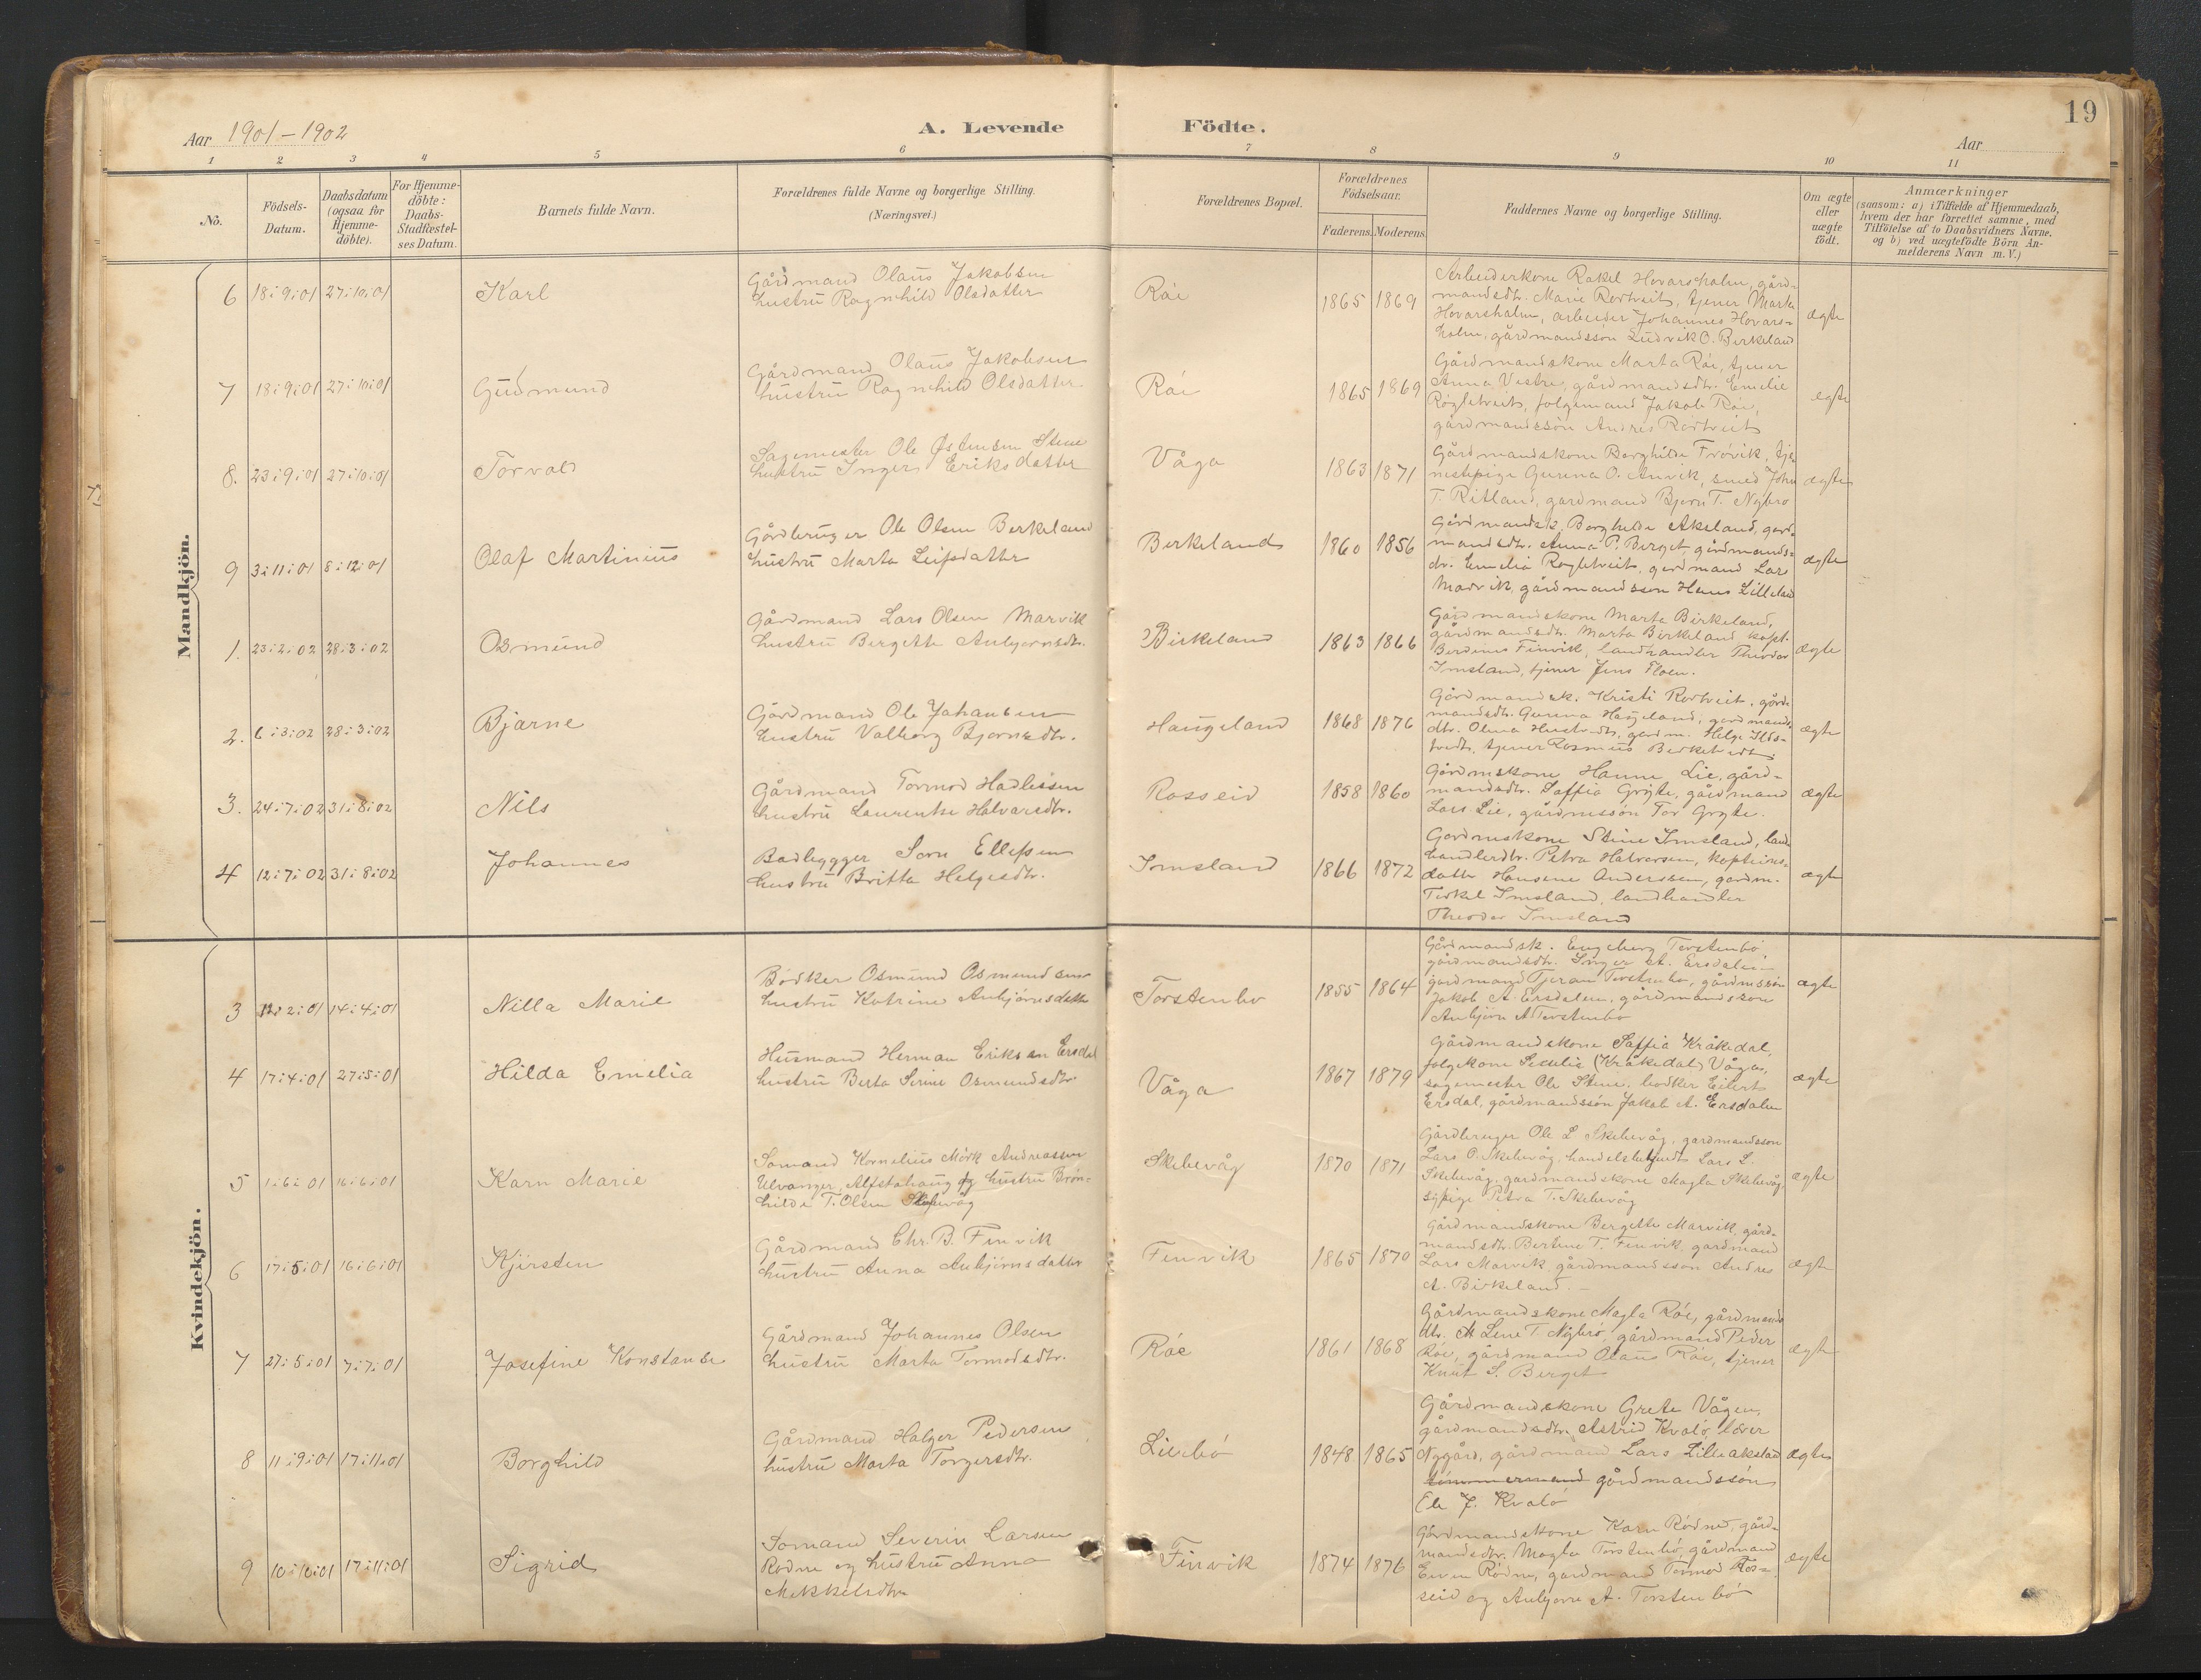 19
Aar 1901-1902
A. Levende Födte.
Aar
1 2 3 4 5 6 7 8 9 10 11
No.
Födsels-
Datum.
Daabsdatum
(ogsaa for
Hjemme-
döbte).
For Hjemme-
döbte:
Daabs-
Stadfæstel-
ses Datum.
Barnets fulde Navn.
Forældrenes fulde Navne og borgerlige Stilling.
(Næringsvei.)
Forældrenes Bopæl.
Forældrenes
Födselsaar.
Faderens. Moderens.
Faddernes Navne og borgerlige Stilling.
Om ægte
eller
uægte
födt.
Anmærkninger
(saasom: a) i Tilfælde af Hjemmedaab,
hvem der har forrettet samme, med
Tilföielse af to Daabsvidners Navne,
og b) ved uægtefödte Börn An-
melderens Navn m. V.)
Mandkjön.
6 18:9:01 27:10:01 Karl
Gårdmand Olaus Jakobsen
hustru Ragnhild Olsdatter
Röe 1865 1869
Arbeiderkone Rakel Hovarsholm, gård-
mandsdtr. Marie Rørtveit, tjener Marta
Hovarsholm, arbeider Johannes Hovars-
holm, gårdmandssön Ludvik O. Birkeland
ægte
7 18:9:01 27:10:01 Gudmund
Gårdmand Olaus Jakobsen
hustru Ragnhild Olsdatter
Röe 1865 1869
Gårdmandskone Marta Röe, tjener
Anna Vestre, gårdmandsdtr. Emelie
Røgletveit, folgemand Jakob Röe,
gårdmandssön Andres Rørtveit
ægte
8. 23:9:01 27:10:01 Torvald
Sagemester Ole Østensen Stene
hustru Inger Eriksdatter
Våga 1863 1871
Gårdmandskone Borghilde Frövik, tje-
nestepige Gurina O. Anvik, smed John
T. Ritland, gårdmand Bjorn T. Nybro
ægte
9 3:11:01 8:12:01 Olaf Martinius
Gårdbruger Ole Olsen Berkeland
hustru Marta Leifsdatter
Berkeland 1860 1856
Gårdmandsk. Borghilde Akeland, gård-
mandsdtr. Anna P. Berget, gårdmands-
dtr. Emelia Røgletveit, gårdmand Lars
Marvik, gårdmandssøn Hans Lilleland
ægte
1. 23:2:02 28:3:02 Osmund
Gårdmand Lars Olsen Marvik
hustru Bergette Anbjørnsdtr.
Birkeland 1863 1866
Gårdmandskone Marta Birkeland,
gårdmandsdtr. Marta Birkeland, kapt.
Berdines Finvik, landhandler Theodor
Imsland, tjener Jens Floen.
ægte
2. 6:3:02 28:3:02 Bjarne
Gårdmand Ole Johansen
hustru Valborg Bjornsdtr.
Haugeland 1868 1876
Gårdmandsk. Kristi Rørtveit, gård-
mandsdtr. Gurina Haugeland, gårdmands
dtr. Olena gårdm. Helge
tjener Rasmus
ægte
3. 24:7:02 31:8:02 Nils
Gårdmand Tormod Hadlesen
hustru Laurentse Halvarsdtr.
Rosseid 1858 1860
Gårdmskone Hanne Lie, gård-
mandsdtr. Saffia Gryte, gårdmand
Lars Lie, gårdmssön Tor Gryte.
ægte
4 12:7:02 31:8:02 Johannes
Badleggger Sorn Ellefsen
hustru Britta Helgesdtr.
Imsland 1866 1872
Gårdmskone Stine Imsland, land-
handlerdtr. Petra Halvorsen, kapteins-
datter Hansene Anderssen, gårdm.
Terkel Imsland, landhandler
Theodor Imsland
ægte
Kvindekjön.
3 12:2:01 14:4:01 Nilla Marie
Bödker Osmund Osmundsen
hustru Katrine Anbjörnsdatter
Torstenbo 1855 1864
Gårdmandsk. Engeborg Torstenbö
gårdmandsdtr. Inger A. Ersdalen
gårdmand Tjeran Torstenbö, gårdmssön
Jakob A. Ersdalen, gårdmandssøn
Anbjörn A Torstenbo
ægte
4 17:4:01 27:5:01 Hilda Emelia
Husmand Herman Eriksen Ersdal
hustru Berta Serine Osmundsdtr.
Våga 1867 1879
Gårdmandskone Saffia Kråkedal,
folgekone Seselia (Kråkedal) Våga,
sagemester Ole Stene, bodker Eilert
Ersdal, gårdmandssön Jakob A. Ersdalen
ægte
5 1:6:01 16:6:01 Karn Marie
Somand Kornelius Mörk Andreassen
Ulvanger, Alfstahaug og hustru Brön-
hilde T. Olsen Skeievåg
Skeievåg 1870 1871
Gårdbruger Ole L Skeievåg, gårdmandsson
Lars O. Skeievåg, handelsbetjent Lars L.
Skeievåg, gårdmandskone Magla Skeievåg,
sypige Petra T. Skeievåg
ægte
6 17:5:01 16:6:01 Kjirsten
Gårdmand Chr. B. Finvik
hustru Anna Anbjörnsdatter
Finvik 1865 1870
Gårdmandskone Bergette Marvik, gård-
mandsdtr. Bertine T. Finvik, gårdmand
Lars Marvik gårdmandsson Andres
A. Birkeland. -
ægte
7 27:5:01 7:7:01 Josefine Konstanse
Gårdmand Johannes Olsen
hustru Marta Tormodsdtr.
Röe 1861 1868
Gårdmandskone Magla Röe, gårdmands
dtr. M Lene T. Nybrö, gårdmand Peder
Röe, gårdmand Olaus Röe, tjener
Knut S. Berget
ægte
8 11:9:01 17:11:01 Borghild
Gårdmand Holger Pedersen
hustru Marta Torgersdtr.
Liebö 1848 1865
Gårdmandskone Grete Vågen,
gårdmandsdtr. Astrid Kvalö, lærer
Nygård, gårdmand Lars Lilleakeland
tömmermand gårdmandssön
Ole J. Kvalö
ægte
9 10:10:01 17:11:01 Sigrid
Somand Severin Larsen
Rödne og hustru Anna
Mikkelsdtr.
Finvik 1874 1876
Gårdmandskone Karn Rödne, gård-
mandsdtr. Magla Torstenbö, gårdmand
Even Rödne, gårdmand Tormod Ros-
seid og Anbjorn A. Torstenbö
ægte